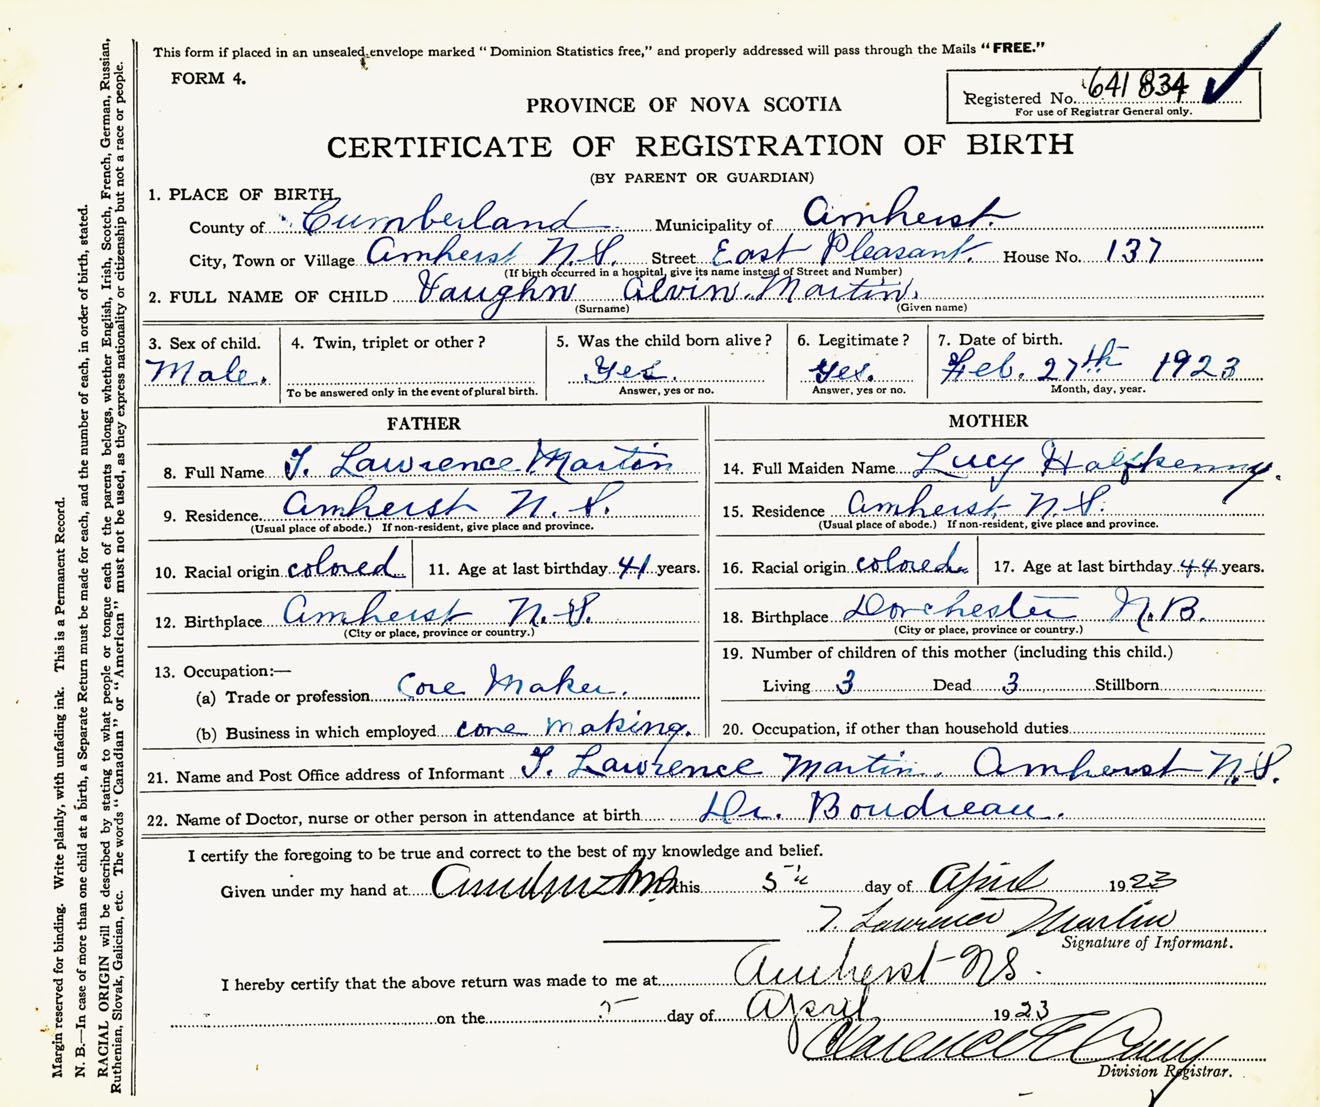 This form if placed in an unsealed envelope marked “ Dominion Statistics free,” and properly addressed will pass through the Mails “ FREE.”
FORM 4.
Registered No. 641 834
For use of Registrar General only.
PROVINCE OF NOVA SCOTIA
CERTIFICATE OF REGISTRATION OF BIRTH
(BY PARENT OR GUARDIAN)
1. PLACE OF BIRTH
County of Cumberland Municipality of Amherst.
City, Town or Village Amherst N.S. Street East Pleasant. House No. 137
(If birth occurred in a hospital, give its name instead of Street and Number)
2. FULL NAME OF CHILD Vaughn Alvin Martin.
(Surname) (Given name)
3. Sex of child. 4. Twin, triplet or other ? 5. Was the child born alive ? 6. Legitimate ? 7. Date of birth.
Male. Yes. Yes. Feb. 27th 1923
To be answered only in the event of plural birth. Answer, yes or no. Answer, yes or no. Month, day, year.
FATHER
8. Full Name T. Lawrence Martin
9. Residence Amherst N.S.
(Usual place of abode.) If non-resident, give place and province.
10. Racial origin colored 11. Age at last birthday 41 years.
12. Birthplace Amherst N.S.
(City or place, province or country.)
13. Occupation:—
(a) Trade or profession Core Maker.
(b) Business in which employed core making.
MOTHER
14. Full Maiden Name Lucy Halfkenny.
15. Residence Amherst N.S.
(Usual place of abode.) If non-resident, give place and province.
16. Racial origin colored 17. Age at last birthday 44 years.
18. Birthplace Dorchester N.B.
(City or place, province or country.)
19. Number of children of this mother (including this child.)
Living 3 Dead 3 Stillborn
20. Occupation, if other than household duties
21. Name and Post Office address of Informant T. Lawrence Martin. Amherst N.S.
22. Name of Doctor, nurse or other person in attendance at birth Dr. Boudreau.
I certify the foregoing to be true and correct to the best of my knowledge and belief.
Given under my hand at Amherst N.S. this 5th day of April 1923
T. Lawrence Martin
Signature of Informant.
I hereby certify that the above return was made to me at Amherst NS.
on the 5 day of April 1923
Clarence E
Division Registrar.
Margin reserved for binding. Write plainly, with unfading ink. This is a Permanent Record.
N. B.—In case of more than one child at a birth, a Separate Return must be made for each, and the number of each, in order of birth, stated.
RACIAL ORIGIN will be described by stating to what people or tongue each of the parents belongs, whether English, Irish, Scotch, French, German, Russian,
Ruthenian, Slovak, Galician, etc. The words “ Canadian” or “ American” must not be used, as they express nationality or citizenship but not a race or people.